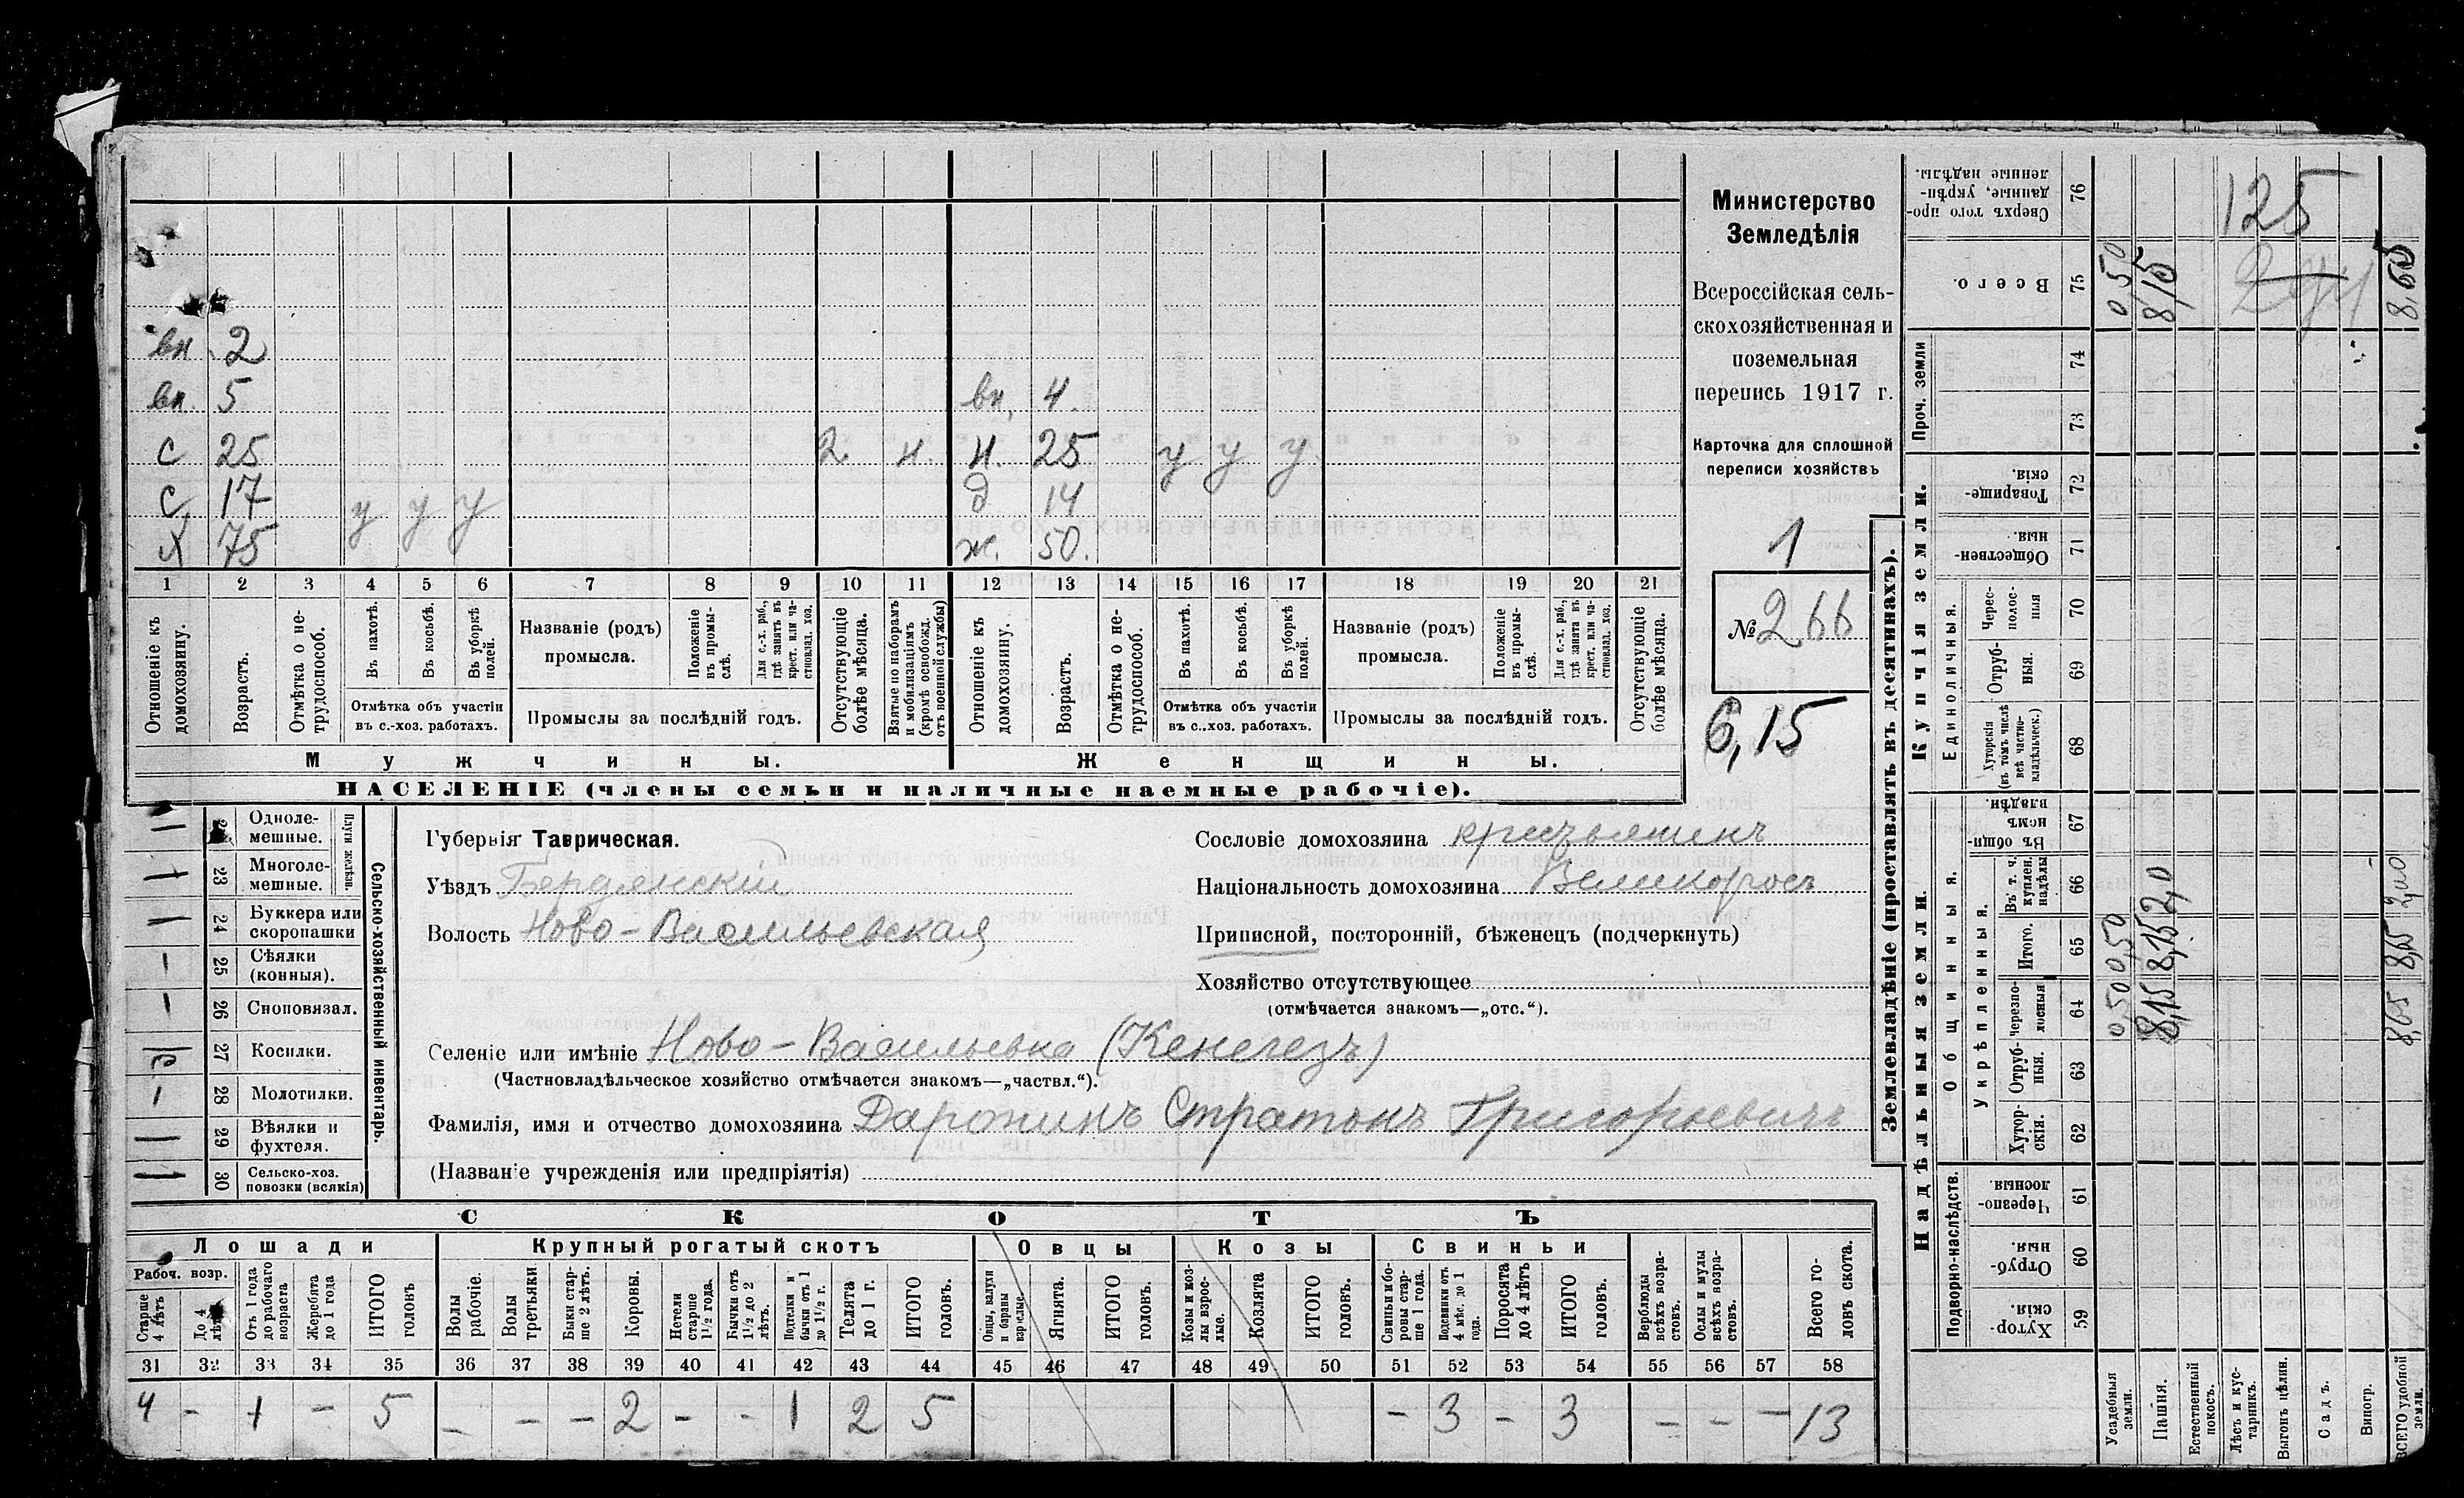 вн 2
вн. 5 вн. 4.
с 25 2 н. н. 25 у у у
с 17 у у у д 14
х 75 ж. 50.
1 2 3 4 5 6 7 8 9 10 11 12 13 14 15 16 17 18 19 20 21
Отношеніе къ домохозяину.
Возрастъ.
Отмѣтка о нетрудоспособ.
Въ пахотѣ.
Въ косьбѣ.
Въ уборкѣ полей.
Отмѣтка объ участіи
въ с.-хоз. работахъ.
Названіе (родъ)
промысла.
Положеніе въ промыслѣ.
Для с.-х. раб., гдѣ занятъ въ крест. или частновлад. хоз.
Промыслы за послѣдній годъ.
Отсутствующіе болѣе мѣсяца.
Взятые по наборамъ и мобилизаціямъ (кромѣ освобожд. отъ военной службы)
Отношеніе къ домохозяину.
Возрастъ.
Отмѣтка о нетрудоспособ.
Въ пахотѣ.
Въ косьбѣ.
Въ уборкѣ полей.
Отмѣтка объ участіи
въ с..хоз. работахъ.
Названіе (родъ)
промысла.
Положеніе въ промыслѣ.
Для с.-х. раб., гдѣ занята въ крест. или частновлад. хоз.
Промыслы за послѣдній годъ.
Отсутствующіе болѣе мѣсяца.
Мужчины. Женщины.
НАСЕЛЕНІЕ (члены семьи и наличные наемные рабочіе).
Министерство
Земледѣлія
Всероссійская сель-
скохозяйственная и
поземельная
перепись 1917 г.
Карточка для сплошной
переписи хозяйствъ
1
№ 266
6,15
Сельско-хозяйственный инвентарь.
Плуги желѣзн.
Одноле-
мешные.
23 Многоле-
мешные.
24 Буккера или
скоропашки
25 Сѣялки
(конныя).
26 Сноповязал.
27 Косилки.
28 Молотилки.
29 Вѣялки и
фухтеля.
30 Сельско-хоз.
повозки (всякія)
Губернія Таврическая.
Уѣздъ Бердянскій
Волость Ново-Васильевская
Сословіе домохозяина крестьянинъ
Національность домохозяина Великоросъ
Приписной, посторонній, бѣженецъ (подчеркнуть)
Хозяйство отсутствующее
(отмѣчается знакомъ—„отс.“).
Селеніе или имѣніе Ново-Васильевка (Кенегезъ)
(Частновладѣльческое хозяйство отмѣчается знакомъ—„частвл.“).
Фамилія, имя и отчество домохозяина Даронинъ Стратонъ Григорьевичъ
(Названіе учрежденія или предпріятія)
СКОТЪ
Лошади Крупный рогатый скотъ Овцы Козы Свиньи
Рабоч. возр.
Старше 4 лѣтъ
До 4 лѣтъ
Отъ 1 года до рабочаго возраста
Жеребята до 1 года
ИТОГО головъ
Волы рабочіе.
Волы третьяки
Быки старше 2 лѣтъ.
Коровы.
Нетели старше 1½ года.
Бычки отъ 1½ до 2 лѣтъ.
Подтелки и бычки отъ 1 до 1½ г.
Телята до 1 г.
ИТОГО головъ.
Овцы, валухи и бараны взрослые
Ягнята.
ИТОГО головъ.
Козы и козлы взрослые.
Козлята
ИТОГО головъ.
Свиньи и боровы старше 1 года.
Подсвинки отъ 4 мѣс. до 1 года.
Поросята до 4 лѣтъ
ИТОГО головъ.
Верблюды всѣхъ возрастовъ.
Ослы и мулы всѣхъ возрастовъ.
Всего головъ скота.
31 32 33 34 35 36 37 38 39 40 41 42 43 44 45 46 47 48 49 50 51 52 53 54 55 56 57 58
4 - 1 - 5 - - - 2 - - 1 2 5 - 3 - 3 - - - 13
Землевладѣніе (проставлять въ десятинахъ).
Надѣльныя земли. Купчія земли. Проч. земли
Подворно-наслѣдств.
Общинныя.
Укрѣпленныя.
Единоличныя.
Хуторскія. 59
Отрубныя. 60
Черезполосныя 61
Хуторскія. 62
Отрубныя. 63
черезполосныя 64
Итого. 65
Въ т. ч. куплен. надѣлы 66
Въ общинномъ владѣн. 67
Хуторскія (въ томъ числѣ всѣ частновладѣльческ.) 68
Отрубныя. 69
Чересполосныя 70
Общественныя. 71
Товарищескія. 72
73
74
Всего. 75
Сверхъ того проданные, укрѣпленные надѣлы. 76
Усадебныя земли. 0,50 0,50 0,50
Пашня. 8,15 8,15 2,0 8,15
Естественный покосъ.
Лѣсъ и кустарникъ.
Выгонъ цѣлин.
Садъ.
Виногр.
ВСЕГО удобной земли. 8,65 8,65 2,00 8,65
125